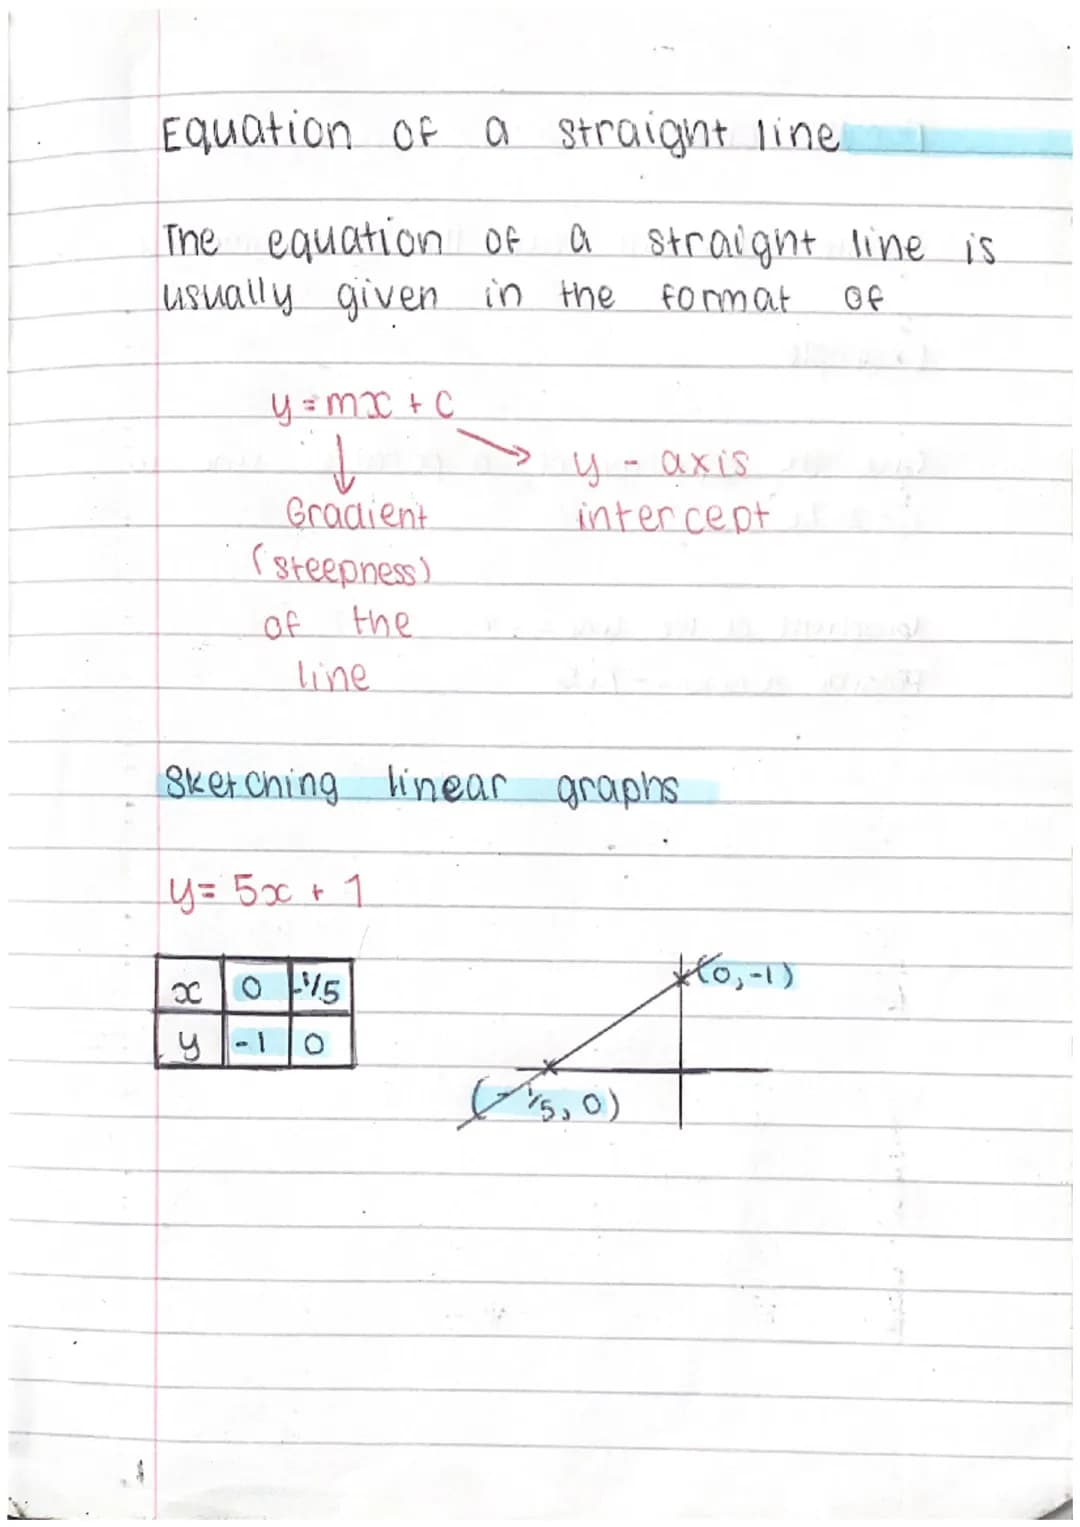 Equation of a straight line
The equation of a straight line is
usually given in the format of
y = mx + c
y - axis
Gradient
intercept
(steepness)
of the
line
Sketching linear graphs
y = 5x + 1
x 0 -1/5
y -1 0
(0, -1)
(-1/5, 0)